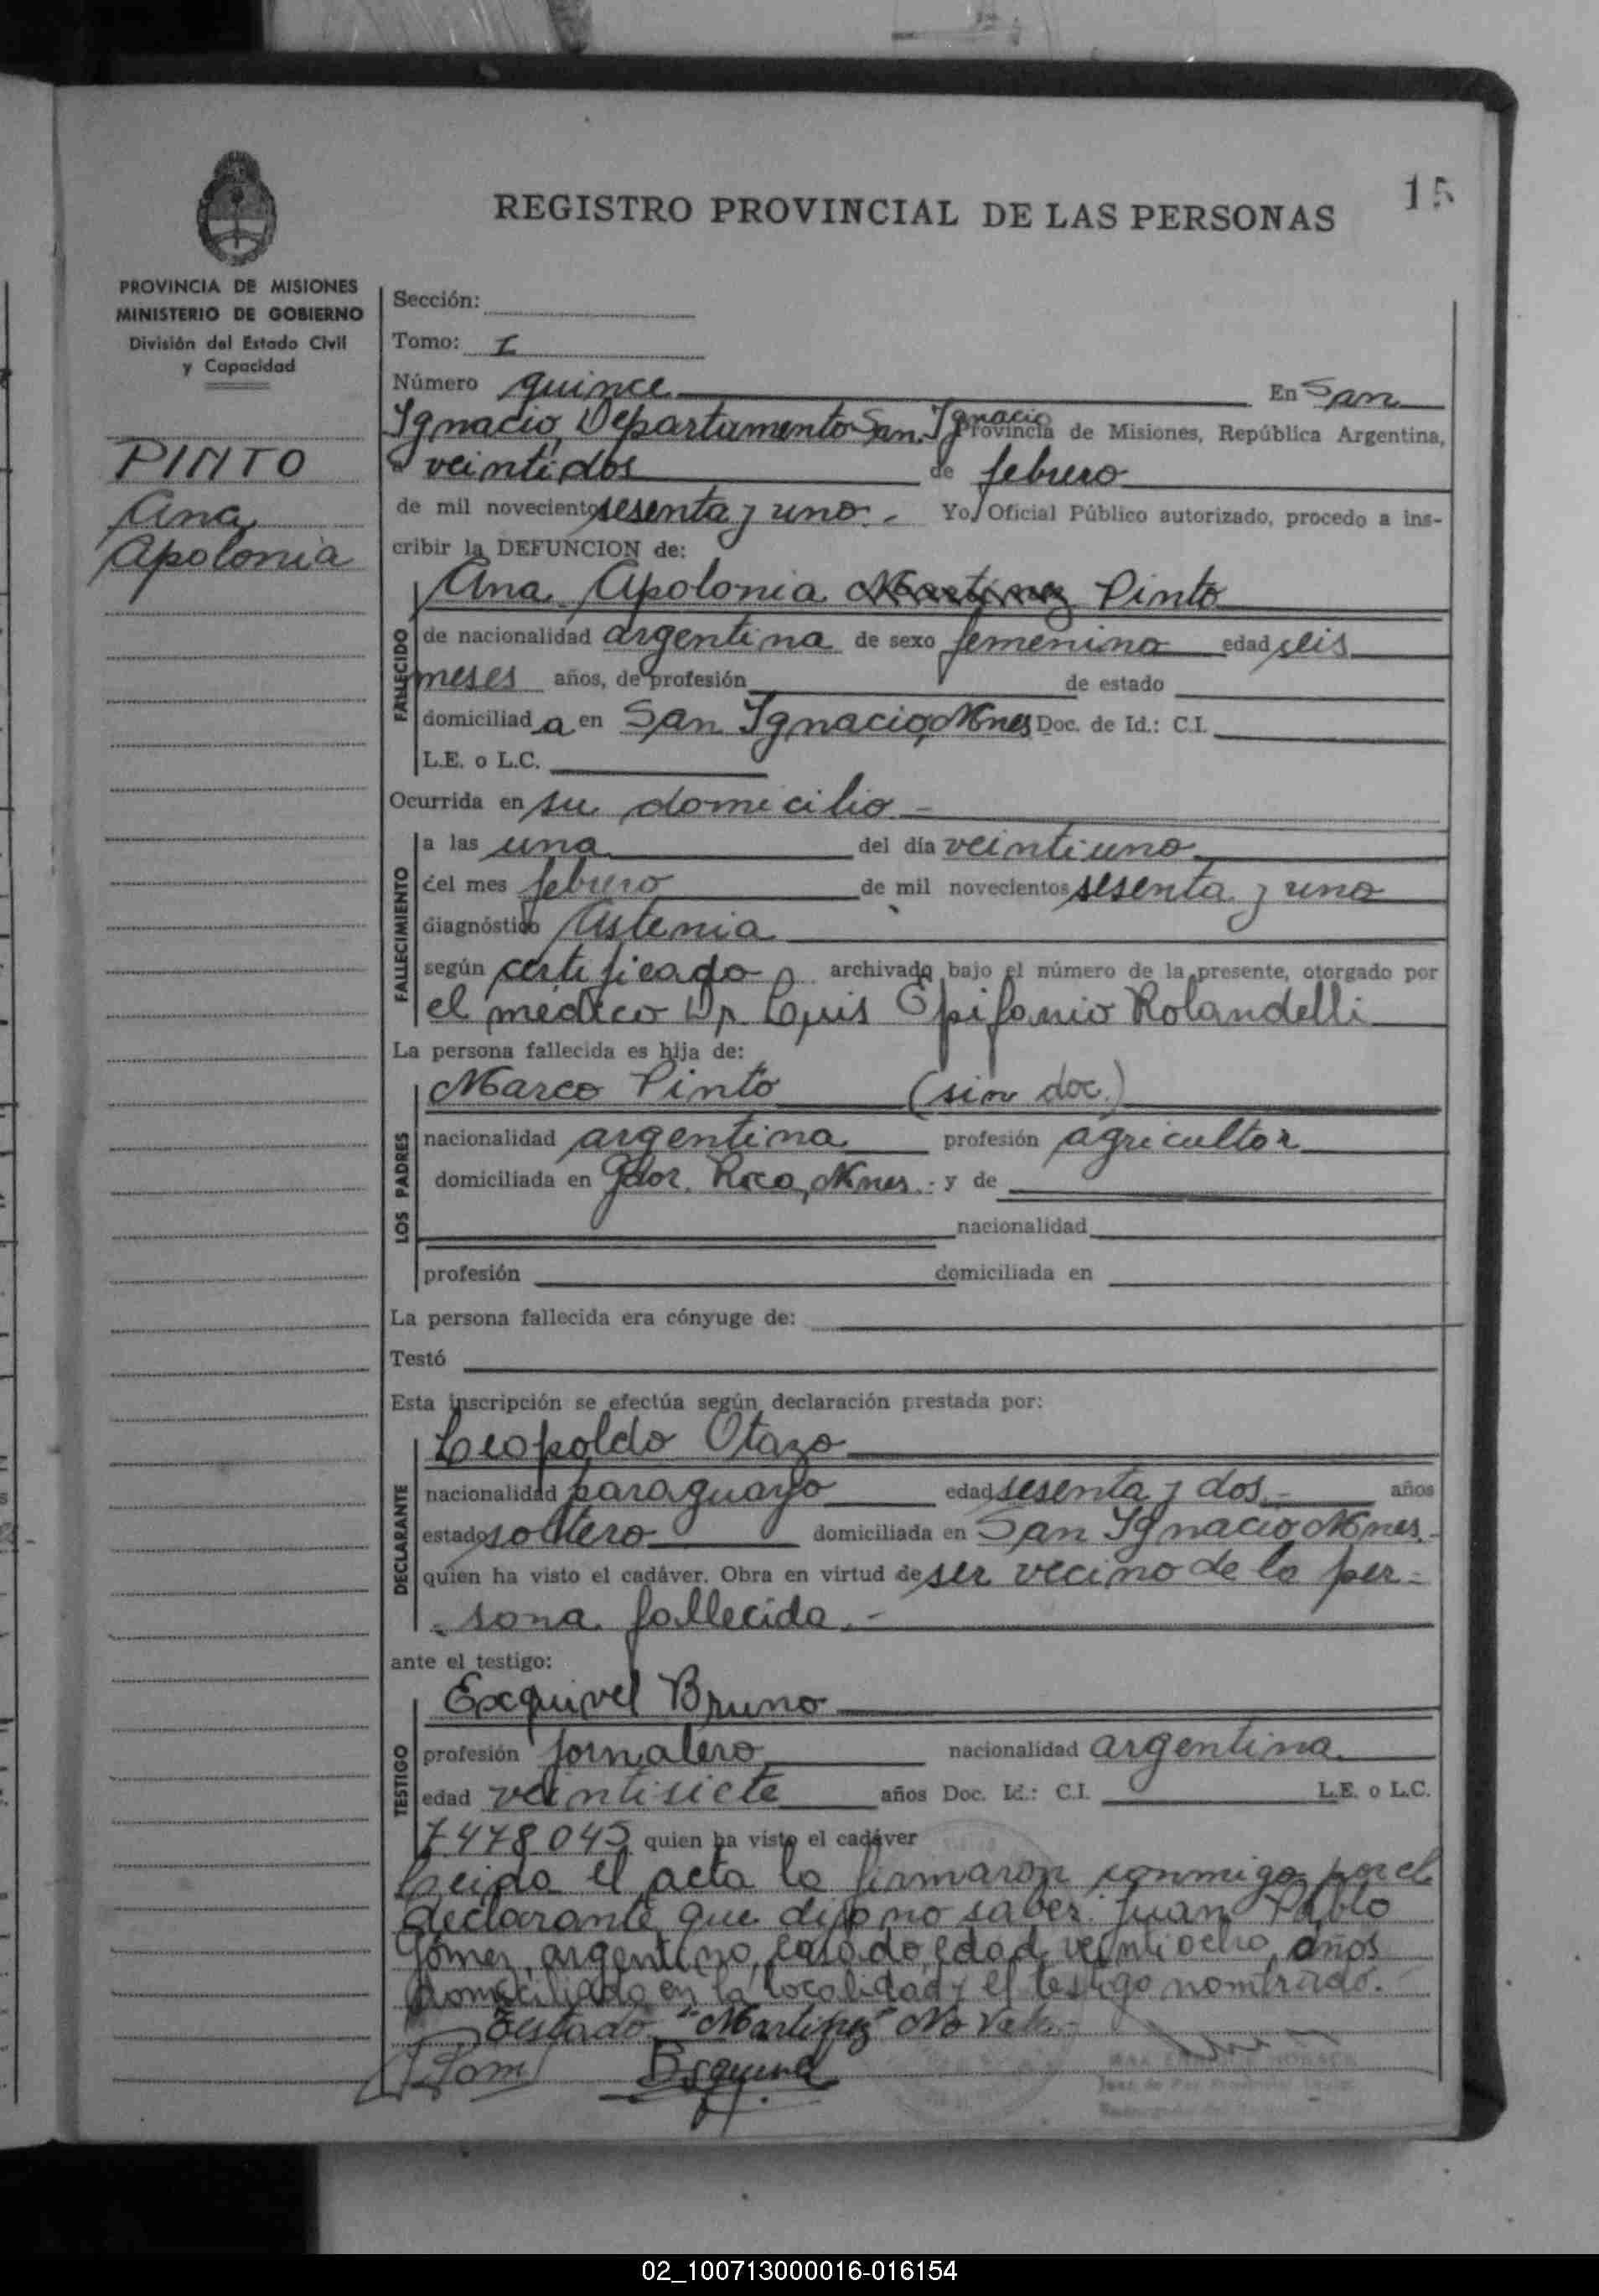 15
REGISTRO PROVINCIAL DE LAS PERSONAS
PROVINCIA DE MISIONES
MINISTERIO DE GOBIERNO
División del Estado Civil
y Capacidad
PINTO
Ana
Apolonia
Sección:
Tomo: I
Número quince En San
Ignacio, Departamento San Ignacio Provincia de Misiones, República Argentina,
a veintidos de febrero
de mil novecientos sesenta y uno.- Yo, Oficial Público autorizado, procedo a ins-
cribir la DEFUNCION de:
Ana Apolonia Martinez Pinto
FALLECIDO
de nacionalidad argentina de sexo femenino edad seis
meses años, de profesión de estado
domiciliad a en San Ignacio, Mnes Doc. de Id.: C.I.
L.E. o L.C.
Ocurrida en su domicilio.-
FALLECIMIENTO
a las una del día veintiuno
del mes febrero de mil novecientos sesenta y uno
diagnóstico Astenia
según certificado archivado bajo el número de la presente, otorgado por
el médico Dr. Luis Epifanio Rolandelli
La persona fallecida es hija de:
LOS PADRES
Marco Pinto (sin doc.)
nacionalidad argentina profesión agricultor
domiciliada en Gdor. Roca, Mnes.- y de
nacionalidad
profesión domiciliada en
La persona fallecida era cónyuge de:
Testó
Esta inscripción se efectúa según declaración prestada por:
DECLARANTE
Leopoldo Otazo
nacionalidad paraguayo edad sesenta y dos.- años
estado soltero domiciliada en San Ignacio Mnes.-
quien ha visto el cadáver. Obra en virtud de ser vecino de la per-
-sona fallecida.-
ante el testigo:
TESTIGO
Exquivel Bruno
profesión jornalero nacionalidad argentina
edad veintisiete años Doc. Id.: C.I. L.E. o L.C.
7478045 quien ha visto el cadáver
Leida el acta la firmaron conmigo por el
declarante que dijo no saber: Juan Pablo
Gómez, argentino, casado, edad veintiocho años
domiciliado en la localidad y el testigo nombrado.-
Testado "Martinez" No Vale.-
Esquivel
02_100713000016-016154